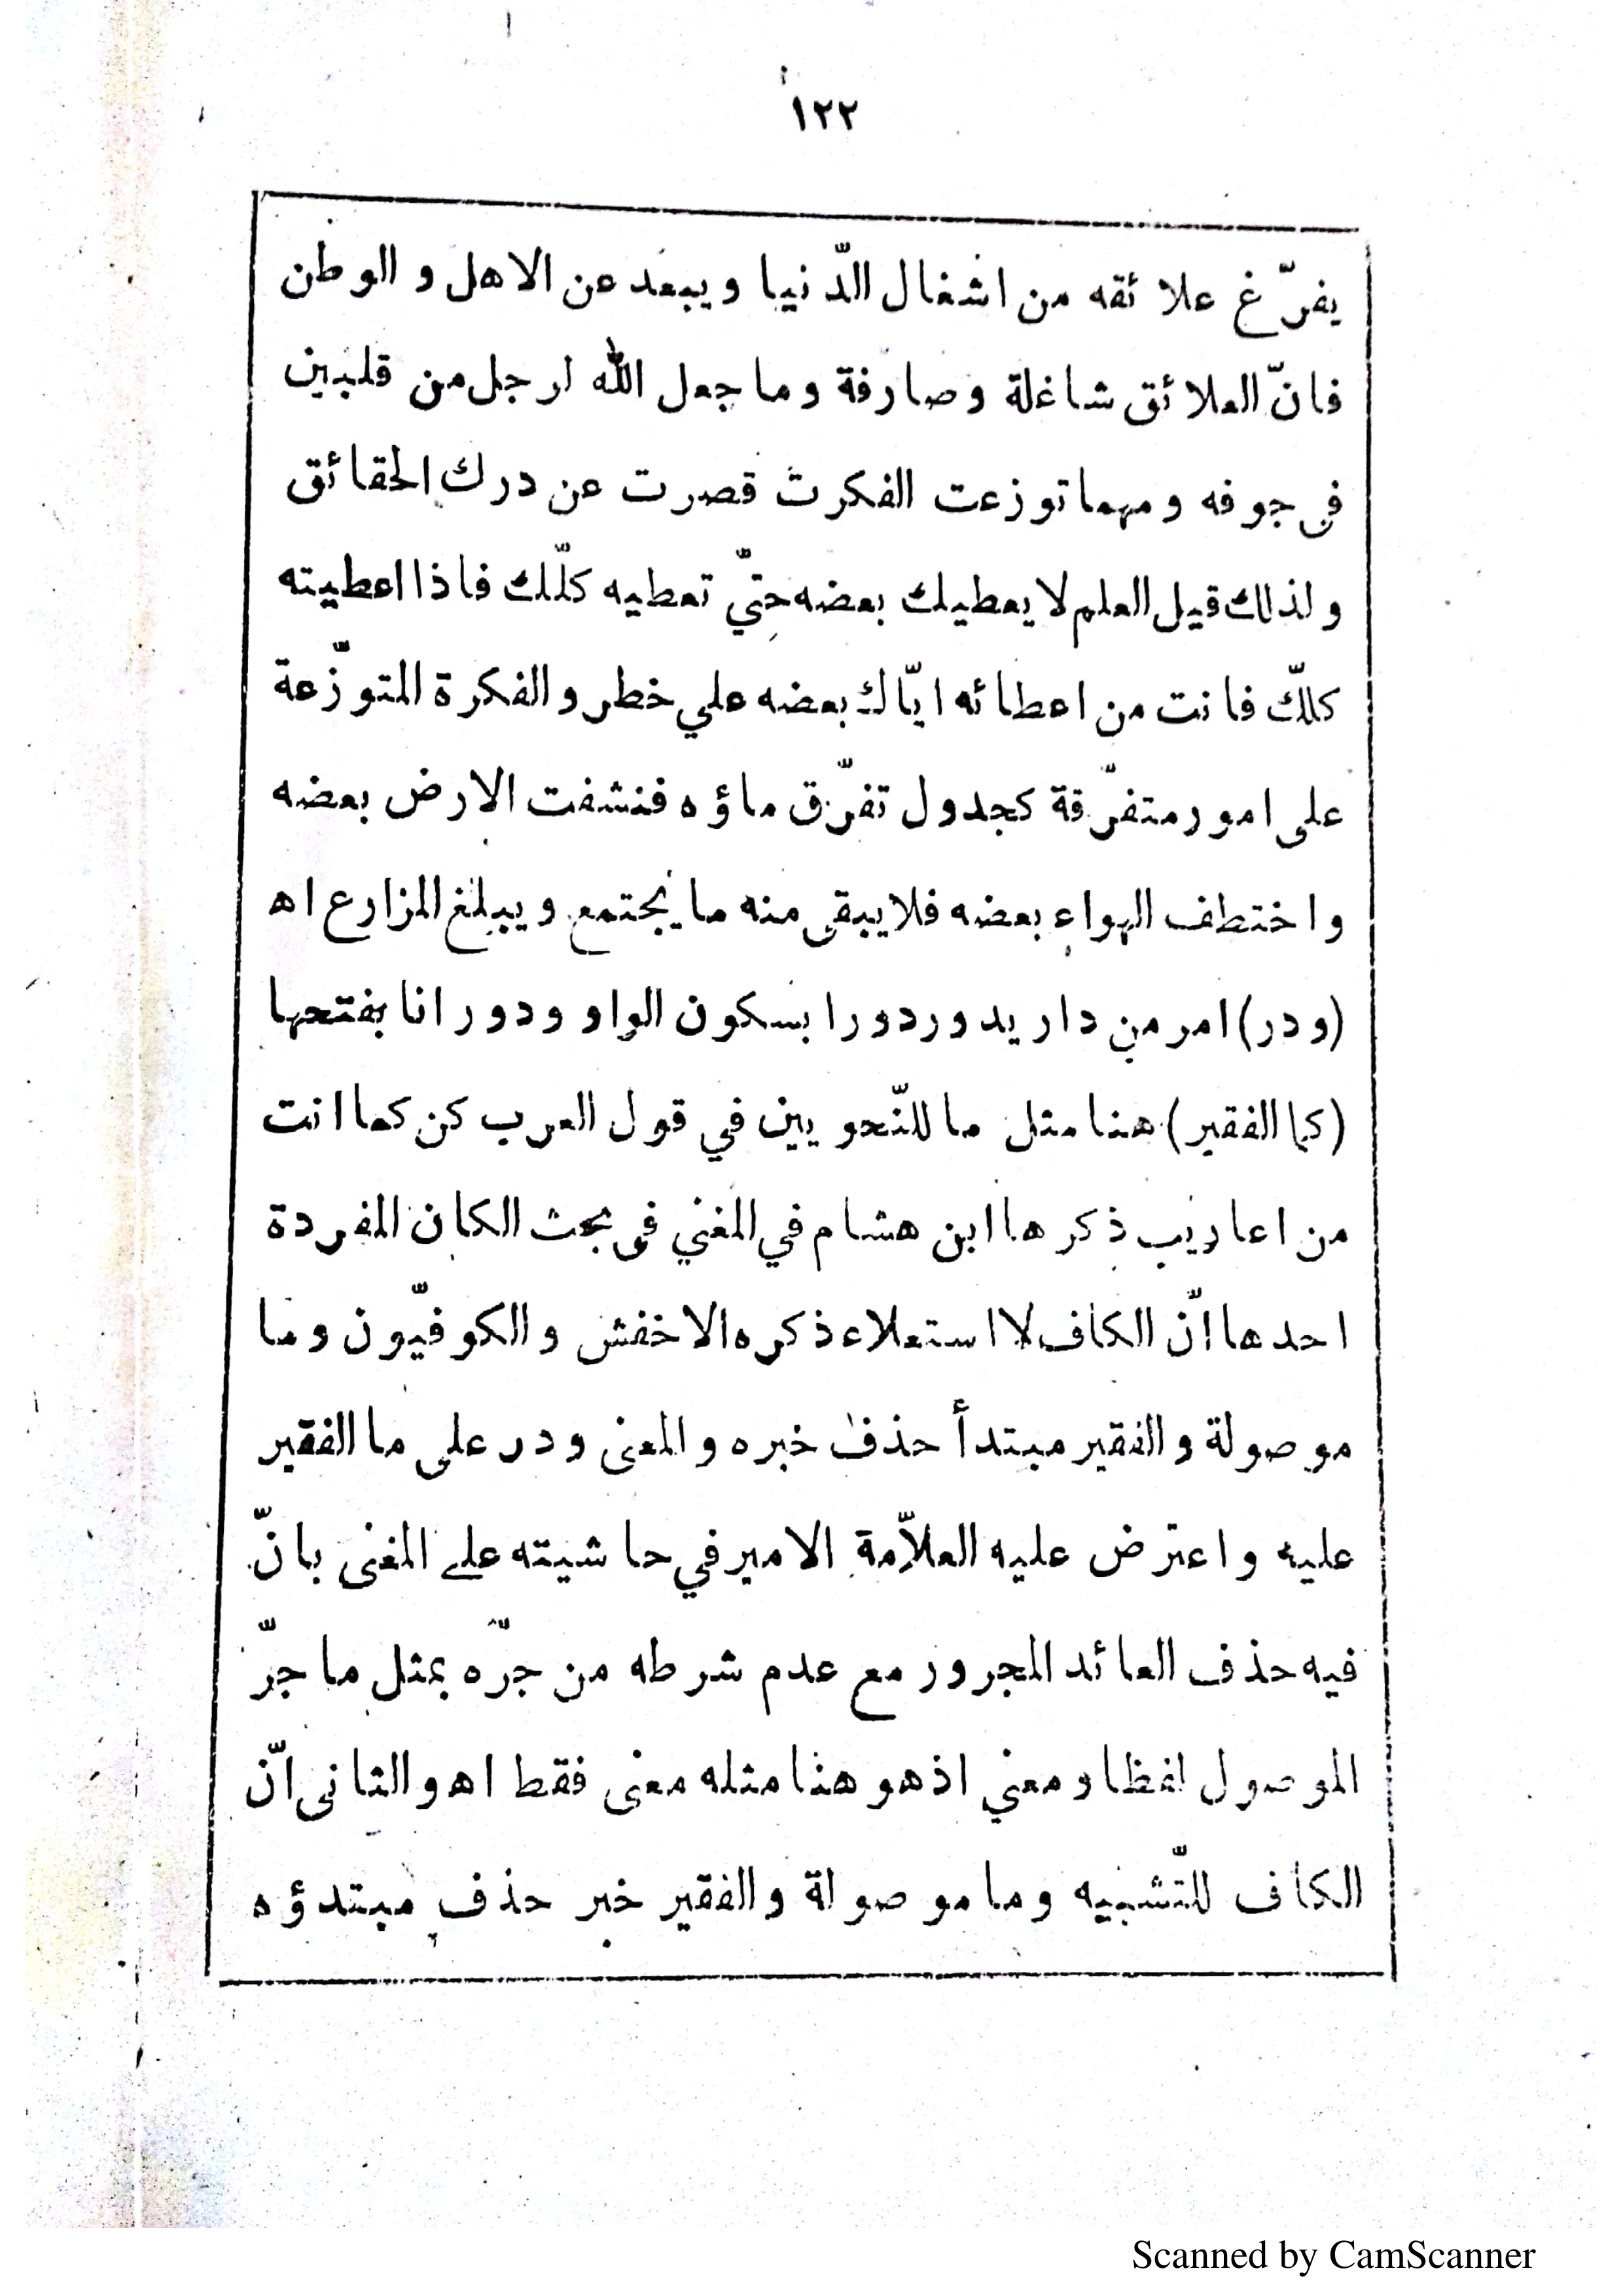 ١٢٢
يفرّغ علائقه من اشغال الدّنيا ويبعد عن الاهل و الوطن
فانّ العلائق شاغلة وصارفة وما جعل الله لرجل من قلبين
فى جوفه ومهما توزعت الفكرت قصرت عن درك الحقائق
ولذلك قيل العلم لا يعطيك بعضه حتّي تعطيه كلّك فاذا اعطيته
كلّك فانت من اعطائه ايّاك بعضه علي خطر والفكرة المتوزّعة
على امور متفرّقة كجدول تفرّق ماؤه فنشفت الارض بعضه
واختطف الهواء بعضه فلا يبقى منه ما يجتمع ويبلغ المزارع اه
(ودر) امر من دار يدور دورا بسكون الواو ودورانا بفتحها
(كما الفقير) هنا مثل ما للنّحويين في قول العرب كن كما انت
من اعاريب ذكرها ابن هشام في المغني فى بحث الكان المفردة
احدها انّ الكاف لا استعلاء ذكره الاخفش والكوفيّون وما
موصولة والفقير مبتدأ حذف خبره والمعنى ودر على ما الفقير
عليه واعترض عليه العلاّمة الامير في حاشيته على المغنى بانّ
فيه حذف العائد المجرور مع عدم شرطه من جرّه بمثل ما جرّ
الموصول لفظا ومعني اذ هو هنا مثله معنى فقط اه والثانى انّ
الكاف للتّشبيه وما موصولة والفقير خبر حذف مبتدؤه
Scanned by CamScanner